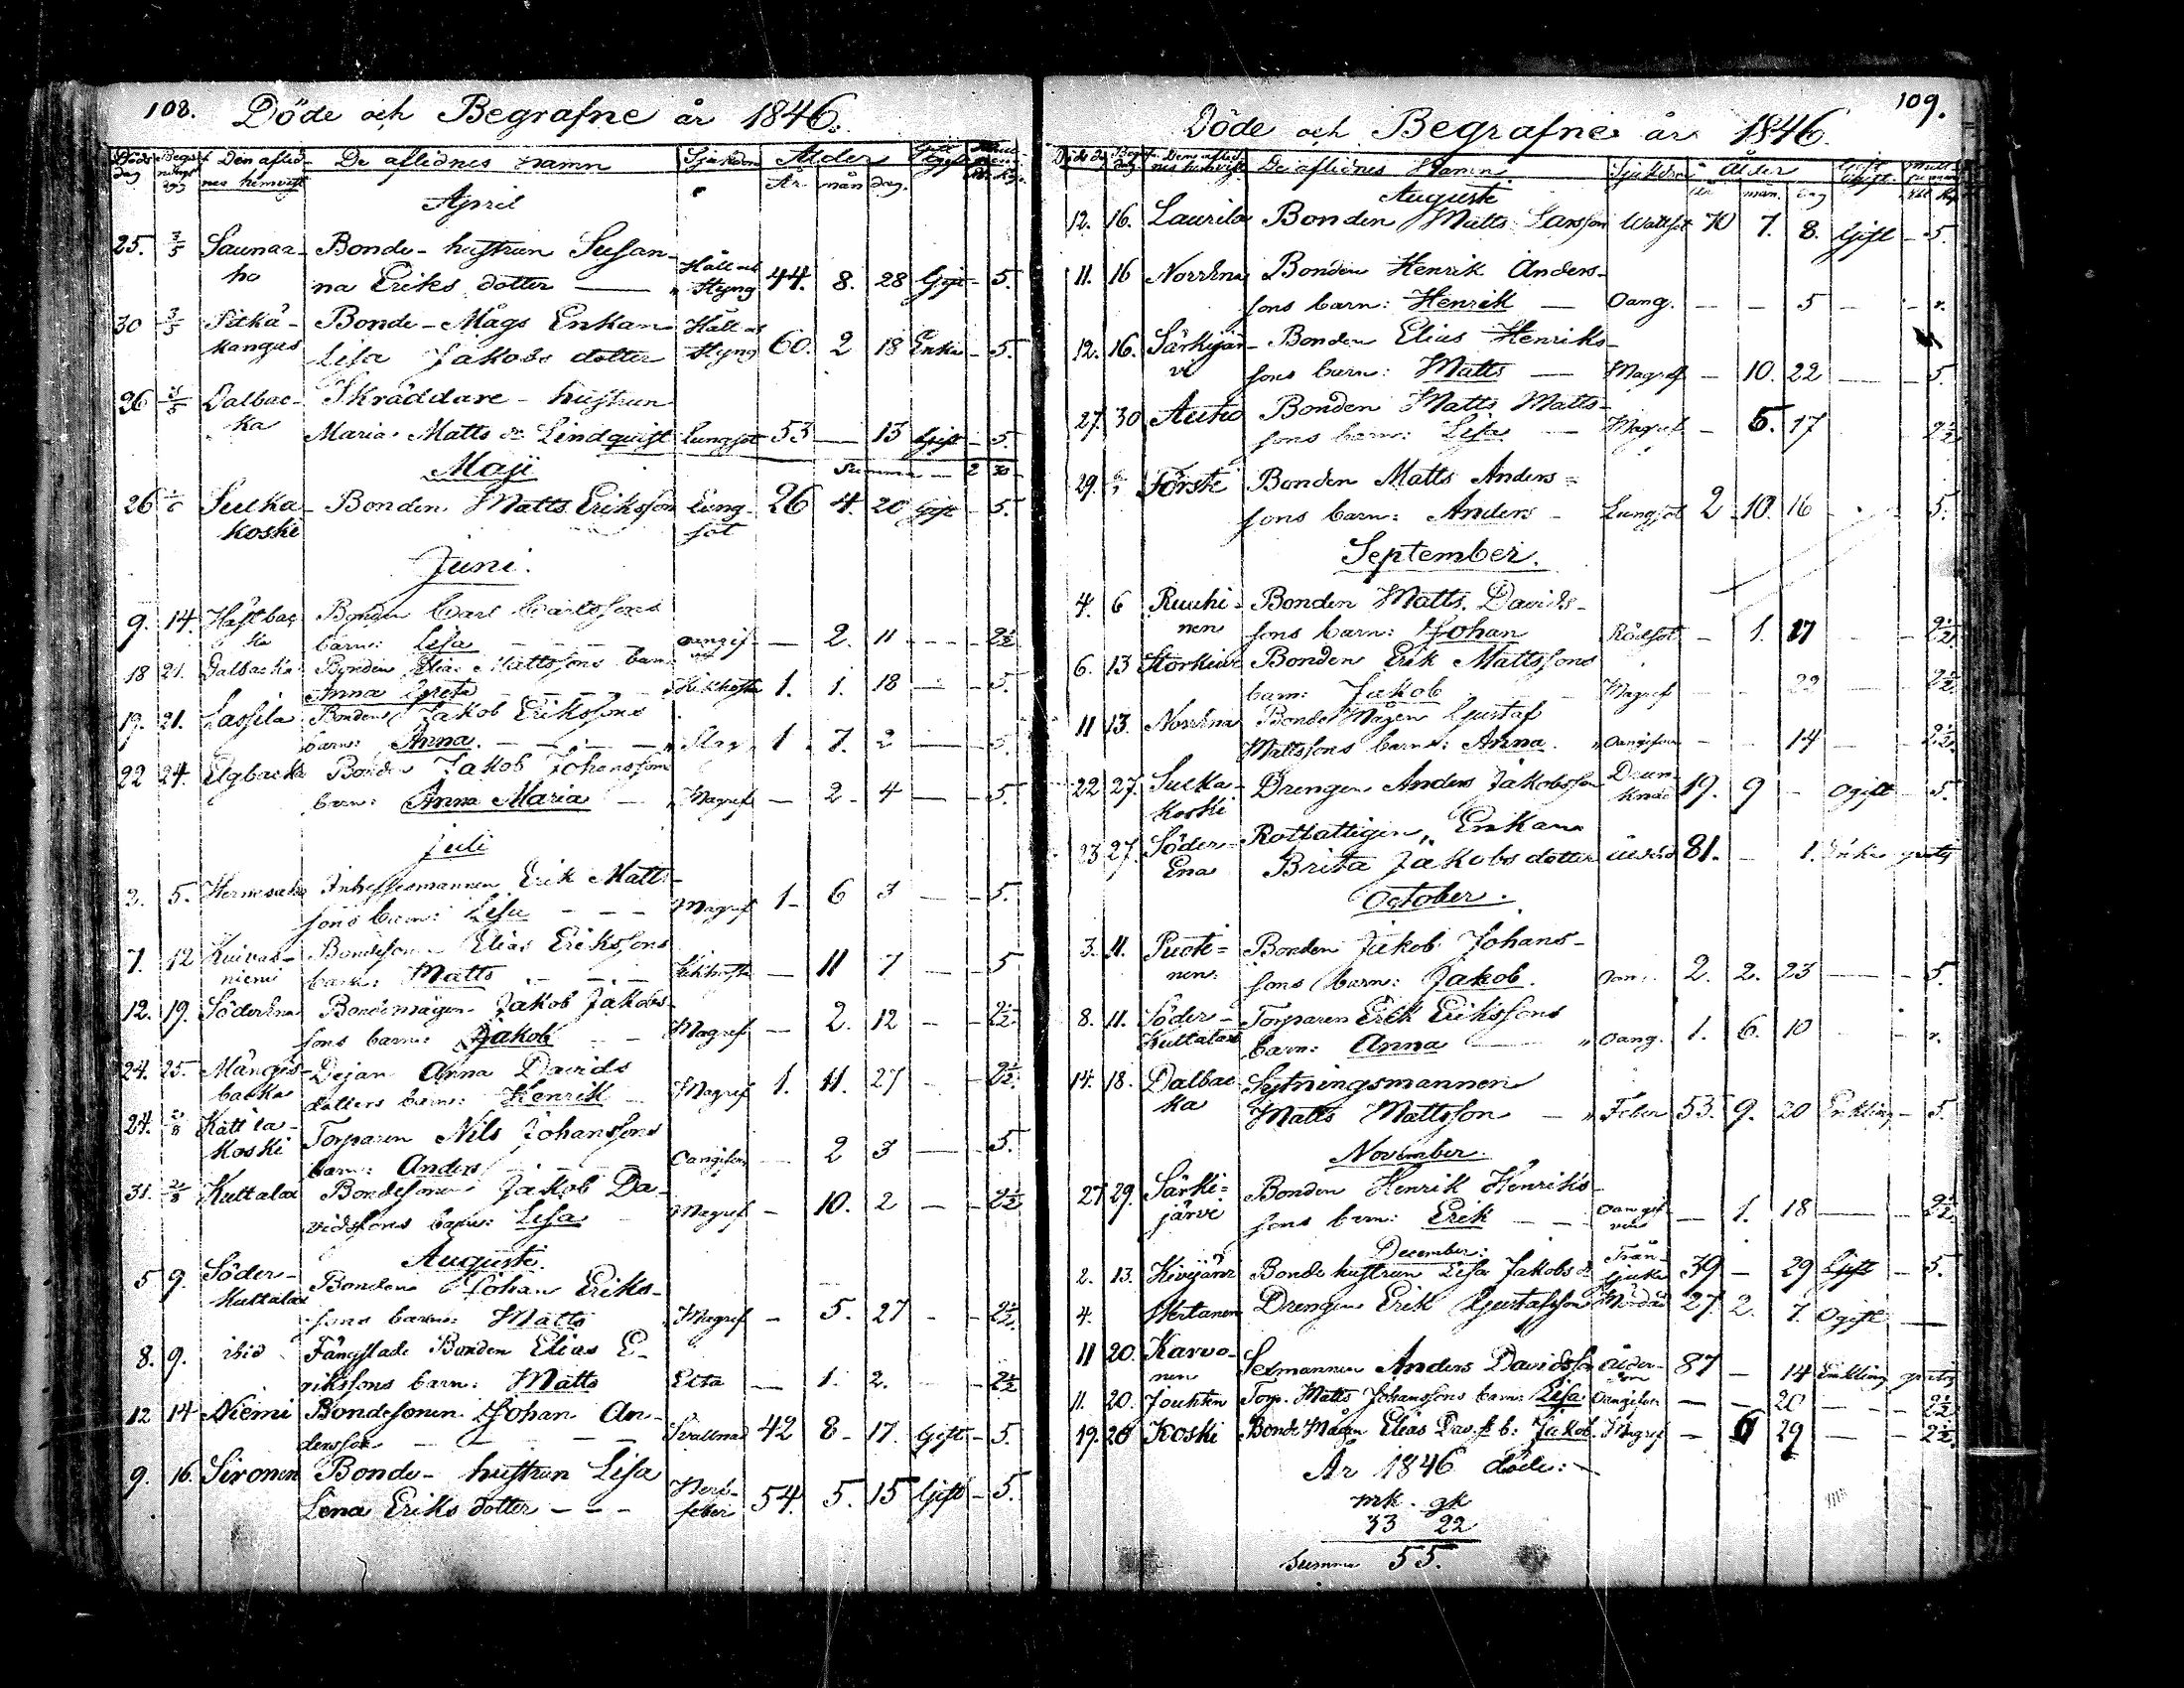 108. Döde och Begrafne år 1846.
Döds dag Begrafnings dag Den aflidnes hemvist De aflidnes namn Sjukdom Ålder
År mån dag.
April
25. 3/5 Saunaa- Bonde-hustrun Susan- Håll och
ho na Eriks dotter — Styng 44. 8. 28 Gift - 5.
30 3/5 Pitkä- Bonde-Mågs Enkan Håll och
kangas Lisa Jakobs dotter Styng 60. 2 18 Enka - 5.
26 3/5 Dalbac- Skräddare-hustrun
ka Maria Matts dr Lindquist Lungsot 53 — 13 Gift - 5.
Maji Summa — 2 30
26 Sulka- Bonden Matts Eriksson Lung- 26 4. 20 Gift - 5.
koski sot
Juni.
9. 14. Hästbac- Bonden Carl Carlssons
ka barn: Lisa - - - oangif- — 2. 11 - - - 2½
18 21. Dalbacka Bonden Elias Mattssons barn
Anna Greta - - - Kikhosta 1. 1. 18 — - 5.
19. 21. Lassila Bonden Jakob Erikssons
barn: Anna. - - - Slag 1. 7. 2 — - 5.
22 24. Elgbacka Bonden Jakob Johanssons
barn: Anna Maria — Magref — 2. 4 — - 5.
Juli
2. 5. Hernesaho Inhysesmannen Erik Matts-
sons barn: Lisa - - - Magref 1- 6 3 — - 5.
7. 12 Kuivas- Bondesonen Elias Erikssons
niemi barn: Matts - - - Kikhosta — 11 7 — - 5
12. 19. Söderena Bondemågen Jakob Jakobs-
sons barn: Jakob - - Magref — 2. 12 - - 2½
24. 25. Mångis- Dejan Anna Davids
backa dotters barn: Henrik - Magref 1. 11. 27 - - 2½
24. 2/8 Kattila- Torparen Nils Johanssons
koski barn: Anders - - - Oangifven — 2 3 — - 5.
31. 2/8 Kultalax Bondesonen Jakob Da-
vidssons barn: Lisa - Magref - 10. 2 - - 2½
Augusti
5 9. Söder- Bonden Johan Eriks-
Kultalax sons barn: Matts - Magref - 5. 27 - - 2½
8. 9. ibid Fångslade Bonden Elias E-
rikssons barn: Matts Elta — 1. 2. - - 2½
12 14 Niemi Bondesonen Johan An-
dersson - - - Svallnad 42 8 - 17. Gift - 5.
9. 16. Sironen Bonde-hustrun Lisa
Lena Eriks dotter - - - feber 54. 5. 15 Gift - 5.
109.
Döde och Begrafne år 1846.
De aflidnes Namn Sjukdom Ålder
Augusti
12. 16. Laurila Bonden Matts Larsson Wattsot 70 7. 8. Gift - 5.
11. 16 Norrena Bonden Henrik Anders-
sons barn: Henrik — Oang. - - 5 —
12. 16. Särkijär- Bonden Elias Henriks-
vi sons barn: Matts — Magref - 10. 22 — - 5.
27. 30 Autio Bonden Matts Matts-
sons barn: Lisa — Magref - 5. 17 2½
29. Förste Bonden Matts Anders-
sons barn: Anders - Lungsot 2 10. 16 - 5.
September.
4. 6 Ruuhi- Bonden Matts Davids-
nen sons barn: Johan Rödsot - 1. 17 - 2½
6. 13 Storkeur Bonden Erik Mattssons
barn: Jakob - Magref - - 22 — 2½
11 13. Norrena BondeMågen Gustaf
Mattssons barn: Anna. Oangifven - - 14 - 2½
22 27. Sulka- Drengen Anders Jakobsson Drun-
koski knad 19. 9 - Ogift - 5.
23 27. Söder- Rotfattigen, Enkan
Ena Brita Jakobs dotter 81. - 1. Enka gratis
October.
3. 11. Puoti- Bonden Jakob Johans-
nen. sons barn: Jakob. 2. 2. 23 — - 5.
8. 11. Söder- Torparen Erik Erikssons
Kultalax barn: Anna — Oang. 1. 6. 10 -
14. 18. Dalbac- Sytningsmannen
ka Matts Mattsson — Feber 53. 9. 20 Enkling - 5.
November.
27 29. Särki- Bonden Henrik Henriks-
järvi sons barn: Erik - - Oangif- — 1. 18 — - 2½
ven
December:
2. 13. Kivijärvi Bonde hustrun Lisa Jakobs dr Trån- 39 - 29 Gift - 5.
sjuka
4. Wirtanen Drengen Erik Gustafsson Mördad 27. 2. 7. Ogift —
11 20. Karvo- Sexmannen Anders Davidsson Ålder- 87 - 14 Enkling gratis
nen dom
11. 20. Jouhten Torp. Matts Johanssons barn: Lisa Oangifven — — 20 — - 2½
19. 26 Koski Bonde Mågen Elias Dav.s. b: Jakob Magref - 6 29 — - 2½
År 1846 döde:
mk. qk
33 22
Summa 55.